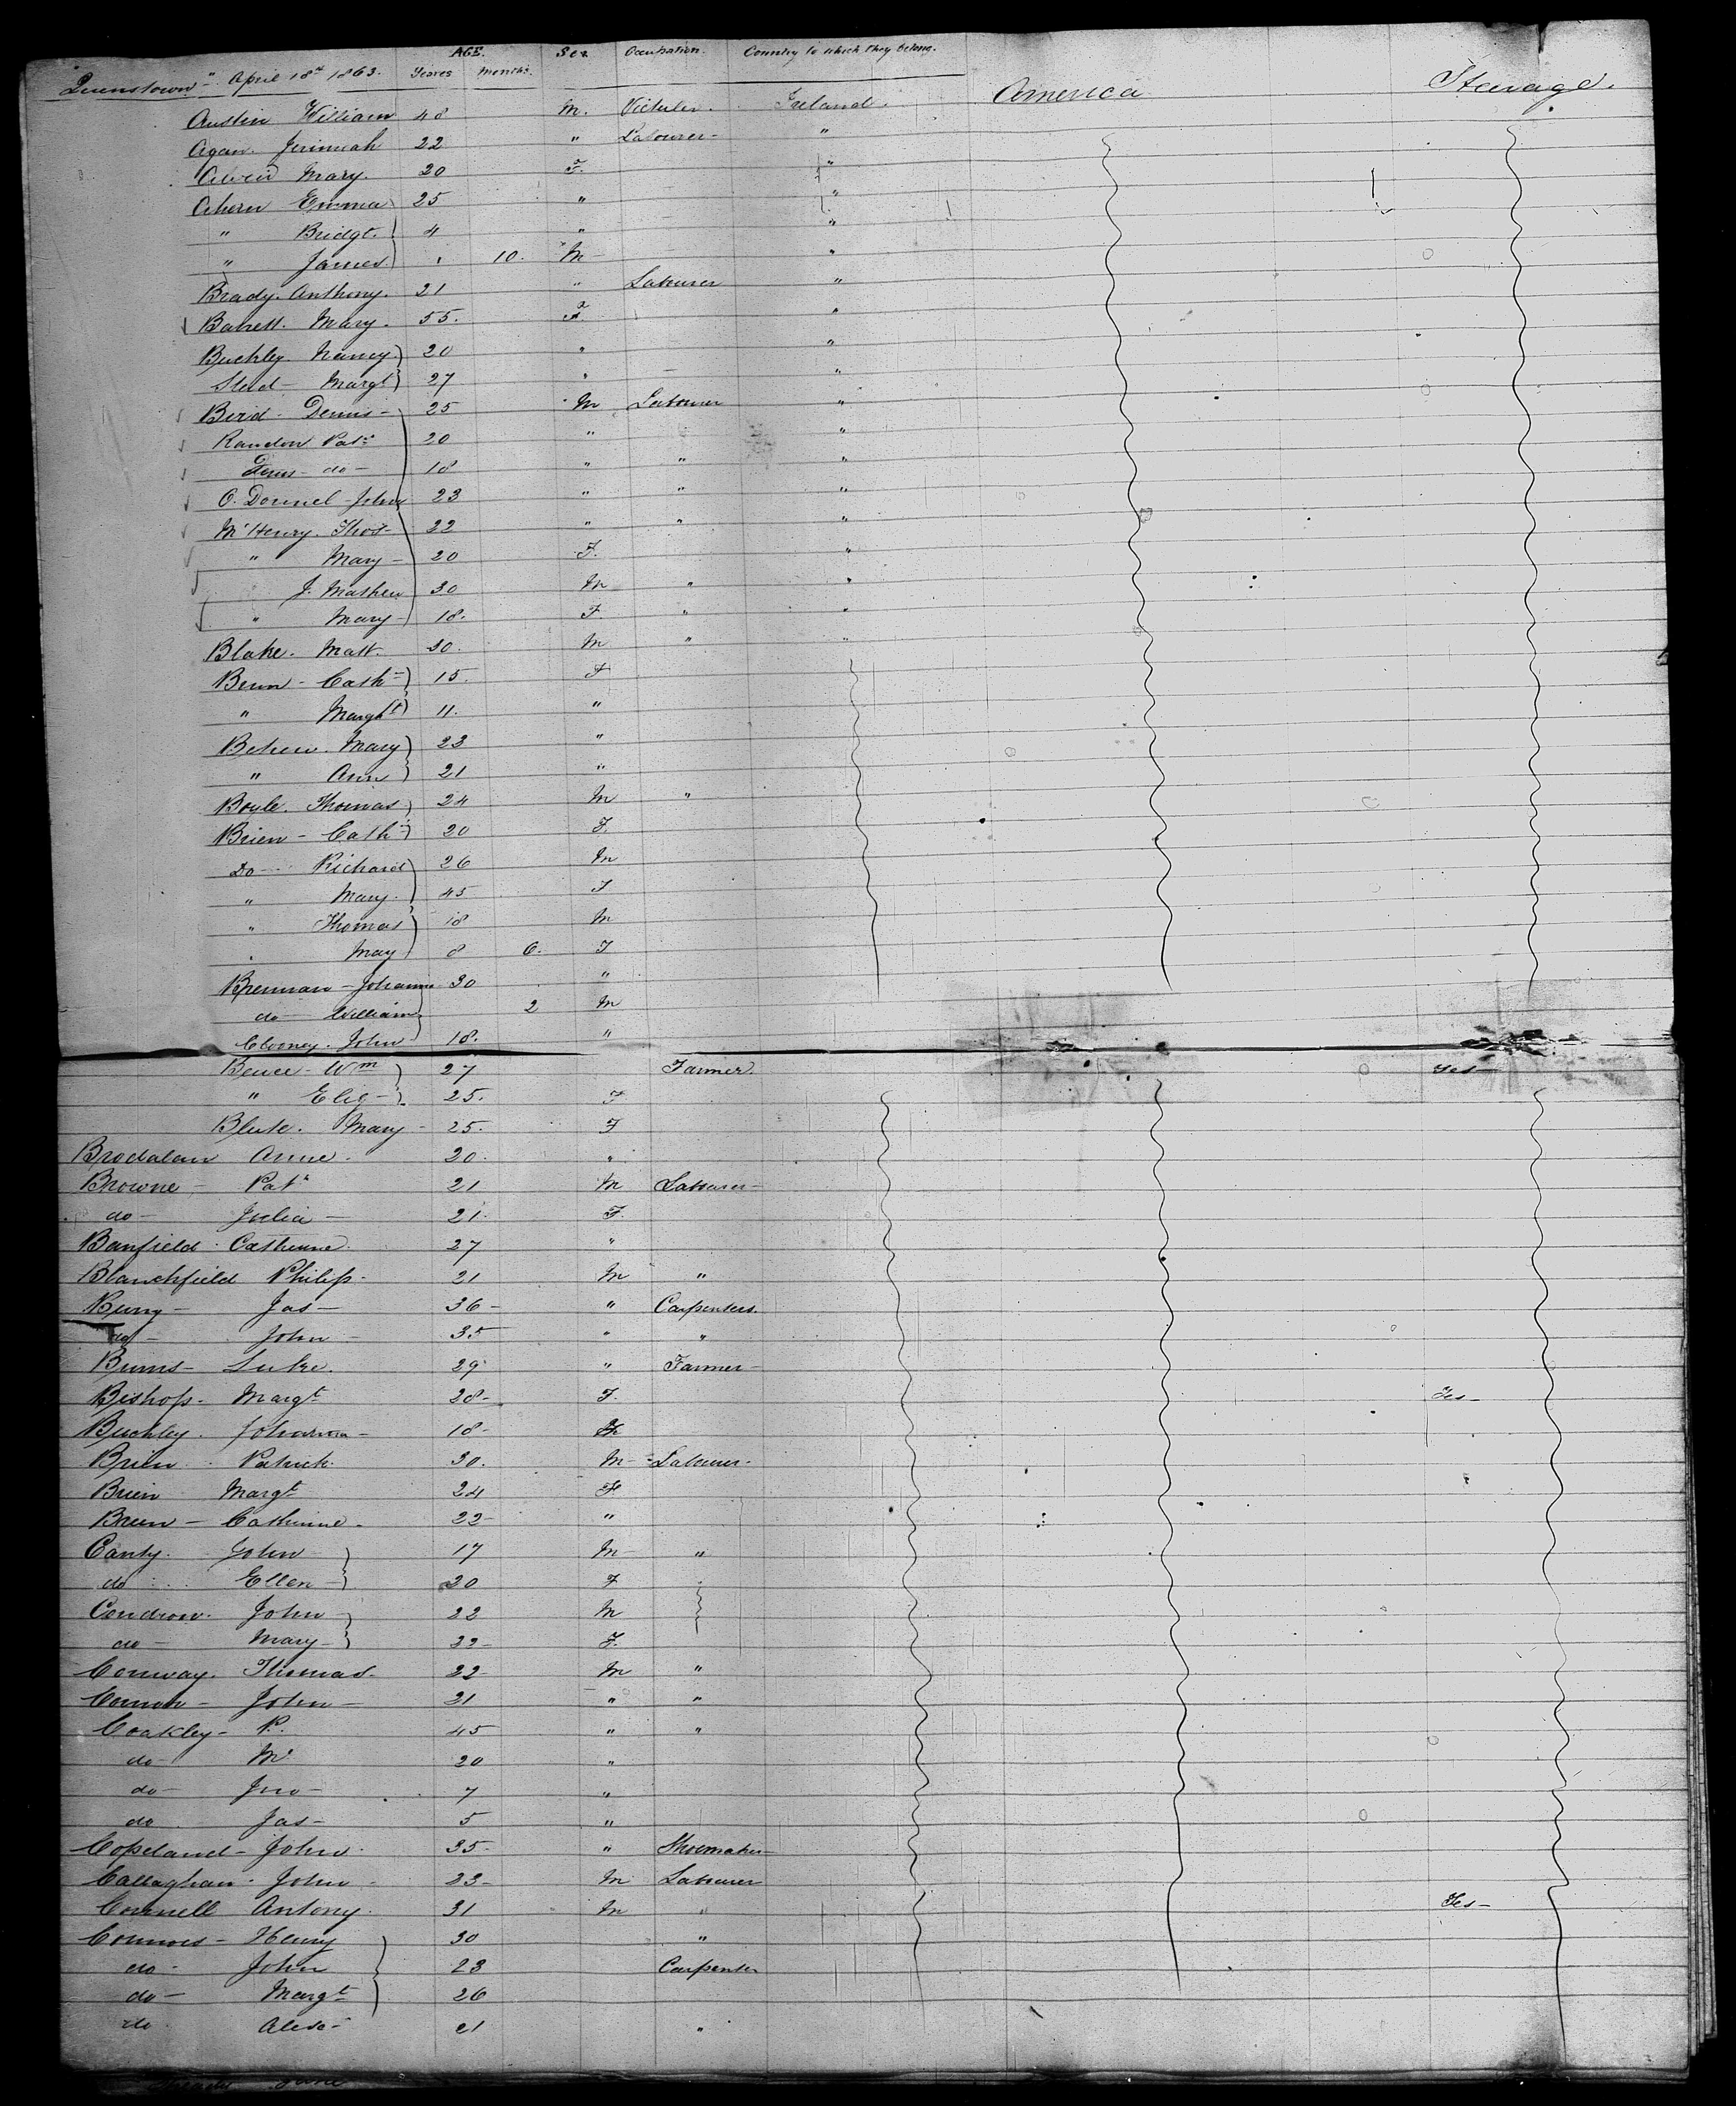 AGE. Sex Occupation. Country to which they belong.
"Queenstown" April 18th 1863. Years Months.
America Steerage.
Austin William 48 M. Victuler. Ireland.
Agan. Jerimiah 22 " Labourer- "
Mary. 20 F. "
Ahern Emma 25 " "
" Bridgt. 4 " "
" James 10. M- "
Brady. Anthony. 21 " Labourer "
Barrett. Mary. 55. F. "
Buckley. Nancy. 20 " "
Margt 27 " "
Bird. Dennis- 25 M Labourer "
Patk 20 " "
do- 18 " " "
O. Donnel- John 23 " " "
McHenry. Thos- 22 " " "
" Mary- 20 F. "
J. Mathew 30 M " "
" Mary- 18. F " "
Blake. Matt. 30. M " "
Cath- 15. F
" Marght 11. "
Mary 23 "
" Ann 21 "
Boyle. Thomas 24 M "
Brien- Cath- 20 F.
Do- Richard 26 M
" Mary. 45 F
" Thomas 18 M
" May 8 6. F
Brennan- Johanna 30 "
do- William 2 M
Clooney. John 18. "
Wm 27 Farmer Yes-
" Eliz- 25. F
Blute. Mary- 25. F
Brodalan Anne. 20. "
Browne- Patk 21 M Labourer-
do- Julia- 21. F.
Banfield. Catherine. 27 "
Blanchfield Philip- 21 M "
Jas- 36- " Carpenters.
do- John- 35 " "
Burns- Luke. 29 " Farmer-
Bishop- Margt 28- F. Yes-
Buckley. Johanna- 18-
Brien. Patrick 30. M- Labourer-
Brien Margt 24 F
Catherine- 22- "
Canty. John 17 M- "
do Ellen- 20 F
Condron. John- 22 M
do- Mary- 22- F.
Conway. Thomas- 22- M "
John- 21 " "
Coakley- P. 45 " "
do- M 20 "
do- Jno- 7 "
do Jas- 5 "
Copeland- John. 35- " Shoemaker-
Callaghan. John- 23- M Labourer
Connell Antony. 31 M " Yes-
Connors- Henry 30 "
do- John 23 Carpenter
do- Margt 26
do 21 "
Jane